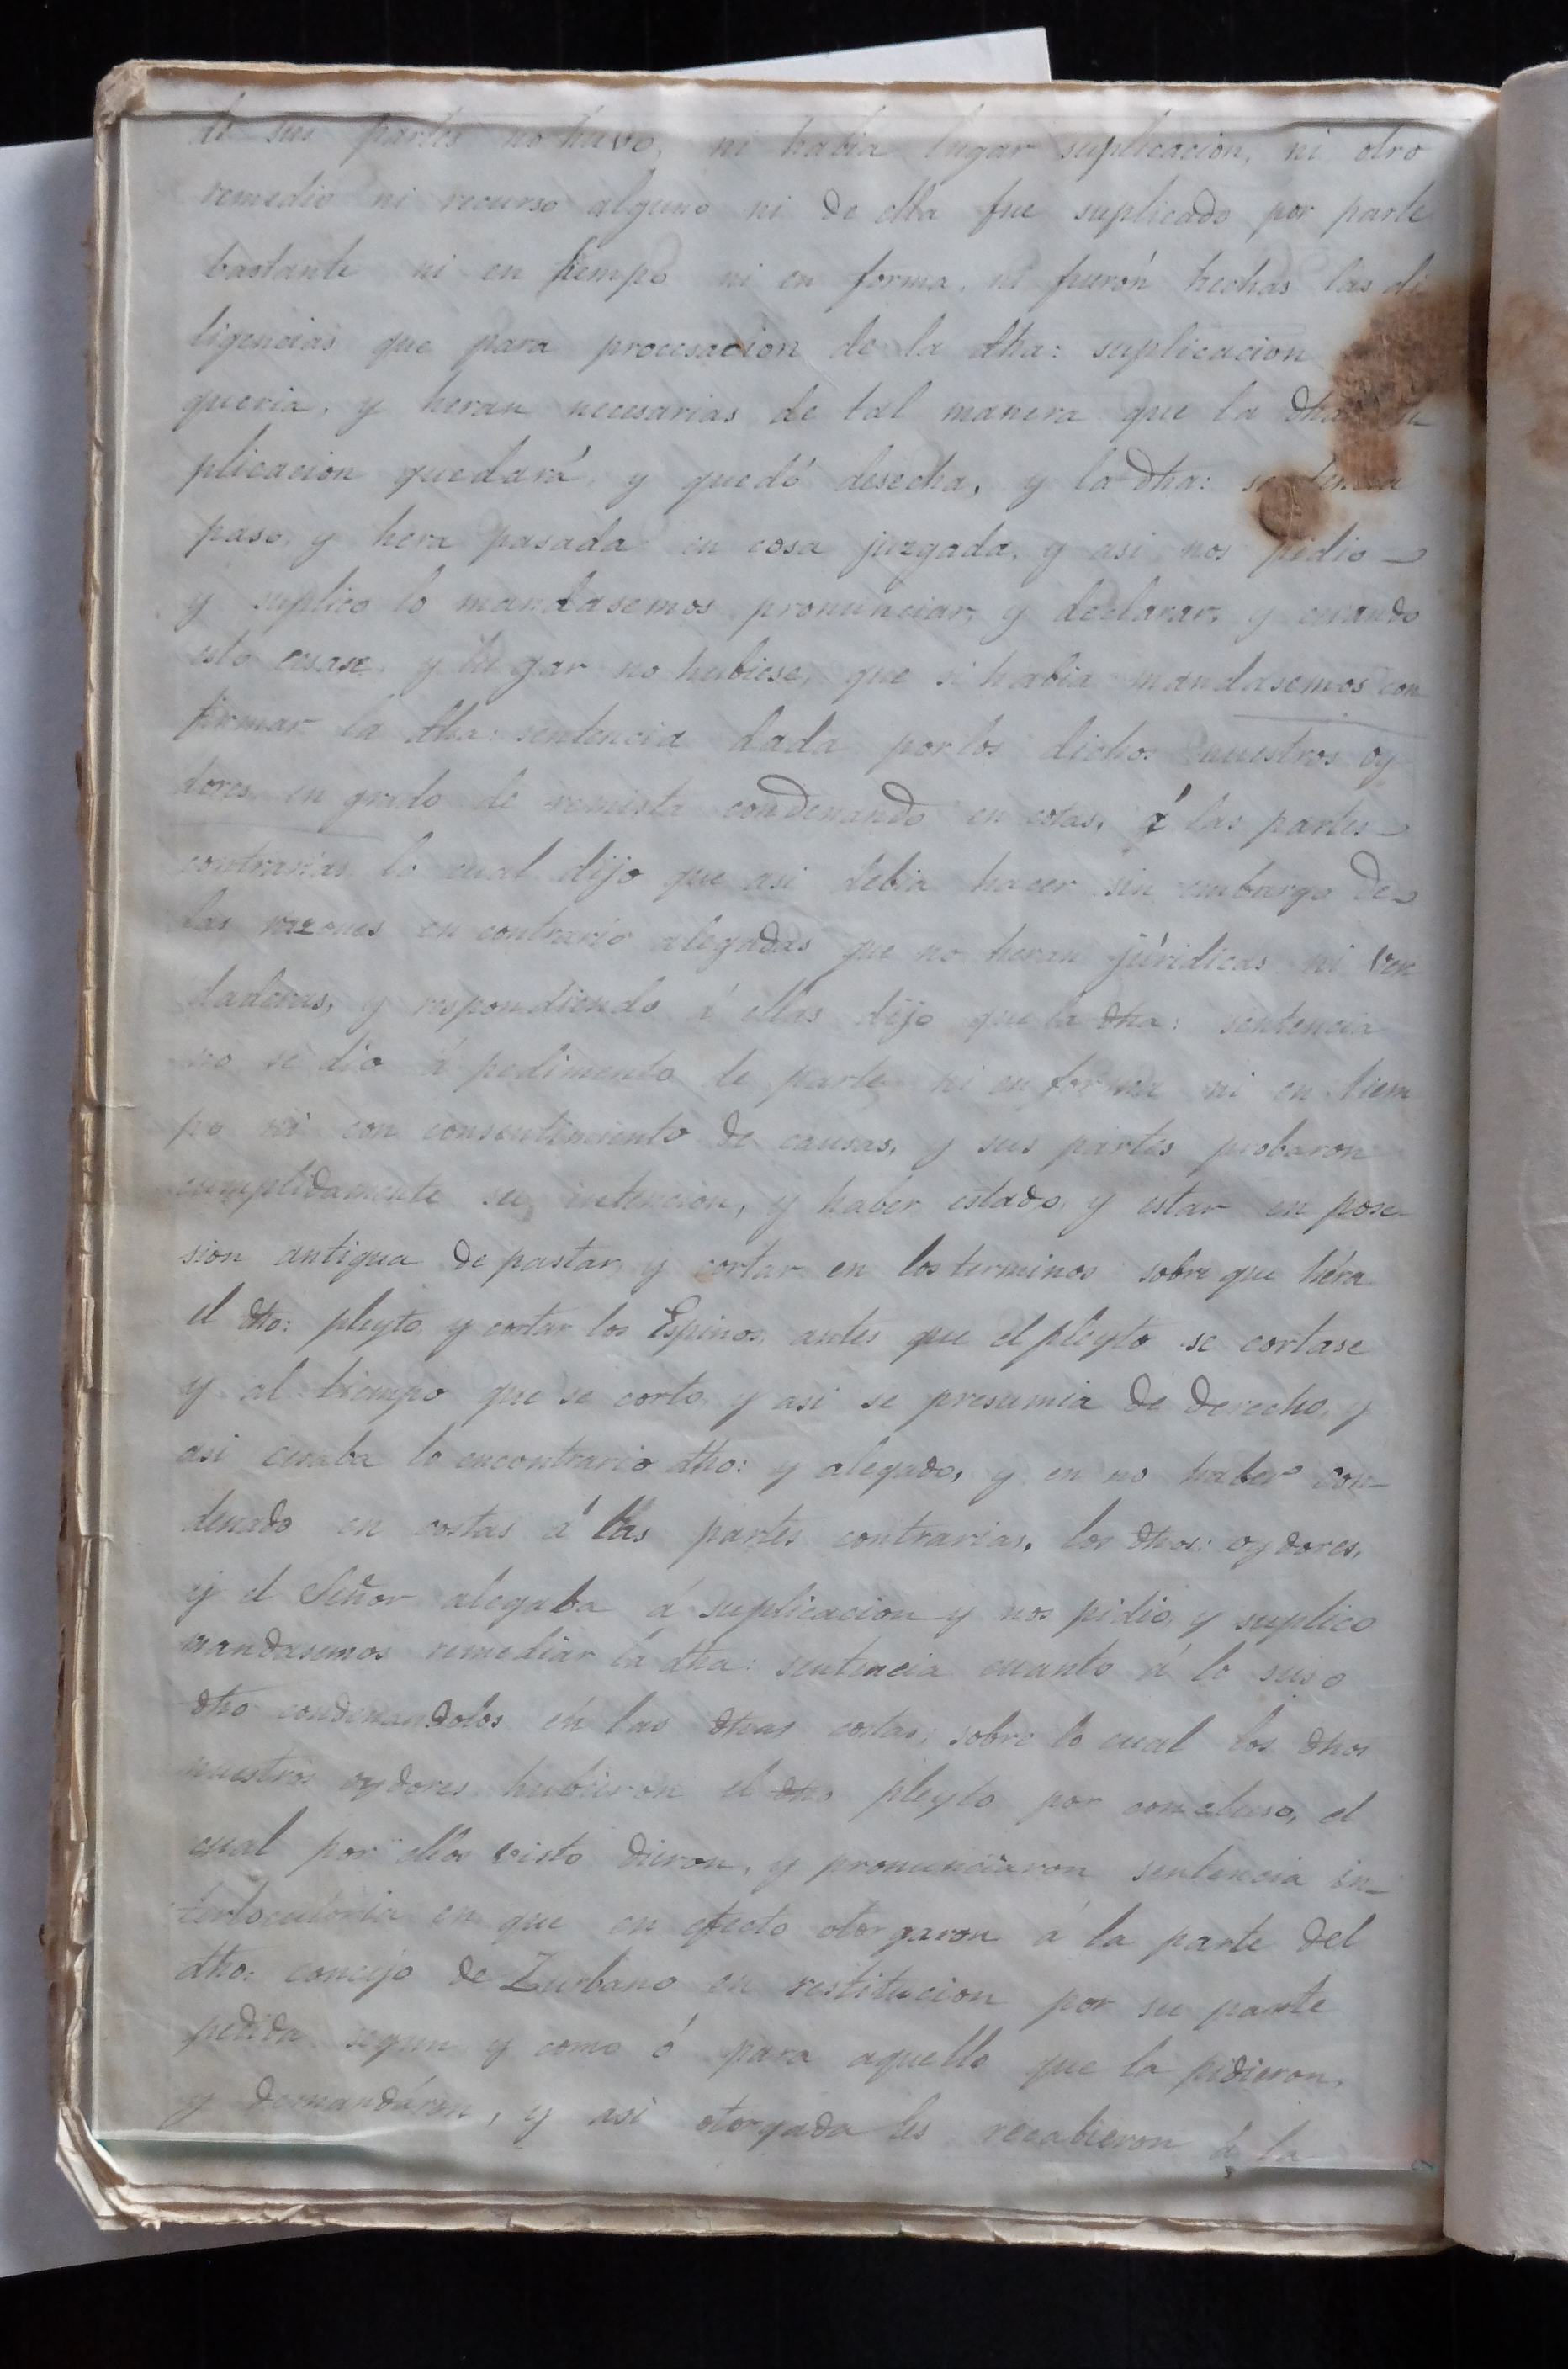 de sus partes no huvo, ni habia lugar suplicacion, ni otro
remedio ni recurso alguno ni de ella fue suplicado por parte
bastante ni en tiempo ni en forma, ni fuerón hechas las di
ligencias que para procesacion de la dha: suplicacion
queria, y heran necesarias de tal manera que la dha: su
plicacion quedará, y quedó desecha, y la dha: sentencia
paso, y hera pasada en cosa juzgada, y asi nos pidio
y suplico lo mandasemos pronunciar, y declarar, y cuando
esto cesase, y lugar no hubiese, que si habia mandasemos con
firmar la dha: sentencia dada por los dichos nuestros oy
dores en grado de remista condenando en costas, á las partes
contrarias lo cual dijo que asi debia hacer sin embargo de
las razones en contrario alegadas que no heran júridicas ni ver
daderas, y respondiendo á ellas dijo que la dha: sentencia
no se dio á pedimento de parte ni en forma ni en tiem
po ni con consentimiento de causas, y sus partes probaron
cumplidamente su intencion, y haber estado, y estar en pose
sion antigua de pastar, y cortar en los terminos sobre que héra
el dho: pleyto, y cortar los Espinos, antes que el pleyto se cortase
y al tiempo que se corto, y asi se presumia de derecho, y
asi cesaba lo encontrario dho: y alegado, y en no haber con-
denado en costas á las partes contrarias, los dhos: oydores,
y el Señor alegaba á suplicacion y nos pidio, y suplico
mandasemos remediar la dha: sentencia cuanto á lo suso
dho condenandolos én las dhas costas, sobre lo cual los dhos
nuestros oydores hubieron el dho pleyto por concluso, el
cual por ellos visto dieron, y pronunciaron sentencia in-
terlocutoria en que en efecto otorgaron á la parte del
dho: concejo de Zurbano en restitucion por su parte
pedida segun y como ó para aquello que la pidieron,
y demandáron, y asi otorgada les recabieron á la